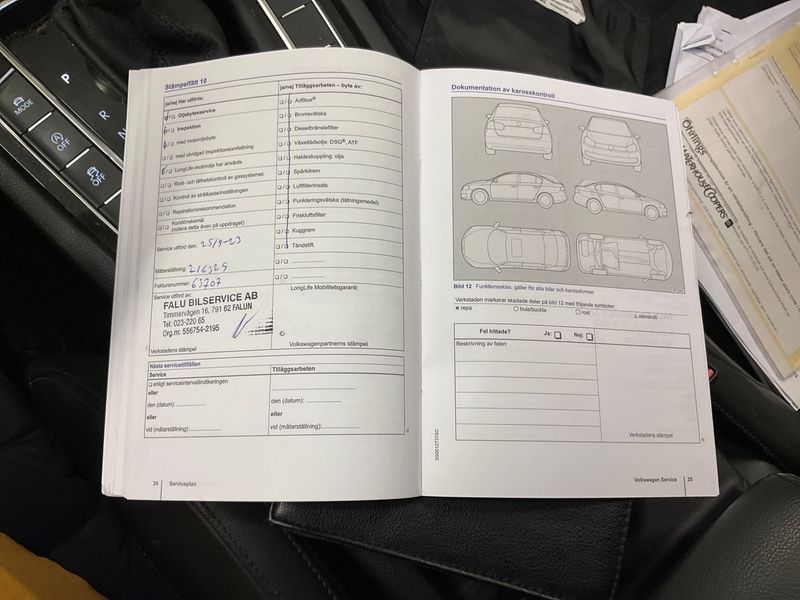 P
R
N
MODE
OFF
OFF
Stämpelfält 10
ja/nej Har utförts:
Oljebytesservice
Inspektion
med motoroljebyte
med utvidgad inspektionsomfattning
LongLife-motorolja har använts
Rost- och täthetskontroll av gassystemet
Kontroll av strålkastarinställningen
Reparationsrekommendation
Kundönskemål
(notera detta även på uppdraget)
Service utförd den: 25/9-23
Mätarställning: 216325
Fakturanummer: 63707
Service utförd av:
FALU BILSERVICE AB
Timmervägen 16, 791 62 FALUN
Tel: 023-220 65
Org.nr. 556754-2195
Verkstadens stämpel
ja/nej Tilläggsarbeten – byte av:
AdBlue®
Bromsvätska
Dieselbränslefilter
Växellådsolja: DSG®, ATF
Haldexkoppling: olja
Spårkilrem
Luftfilterinsats
Punkteringsvätska (tätningsmedel)
Friskluftsfilter
Kuggrem
Tändstift
LongLife Mobilitetsgaranti:
Volkswagenpartnerns stämpel
Nästa servicetillfällen
Service
enligt serviceintervallindikeringen
eller
den (datum):
eller
vid (mätarställning):
Tilläggsarbeten
den (datum):
eller
vid (mätarställning):
24 Serviceplan
Dokumentation av karosskontroll
Bild 12 Funktionsskiss: gäller för alla bilar och karossformer
Verkstaden markerar skadade delar på bild 12 med följande symboler:
× repa ○ bula/buckla □ rost △ stenskott
Fel hittade? Ja: Nej:
Beskrivning av felen:
Verkstadens stämpel
3G0012737SC
Volkswagen Service 25
Öhrlings
PRICEWATERHOUSECOOPERS